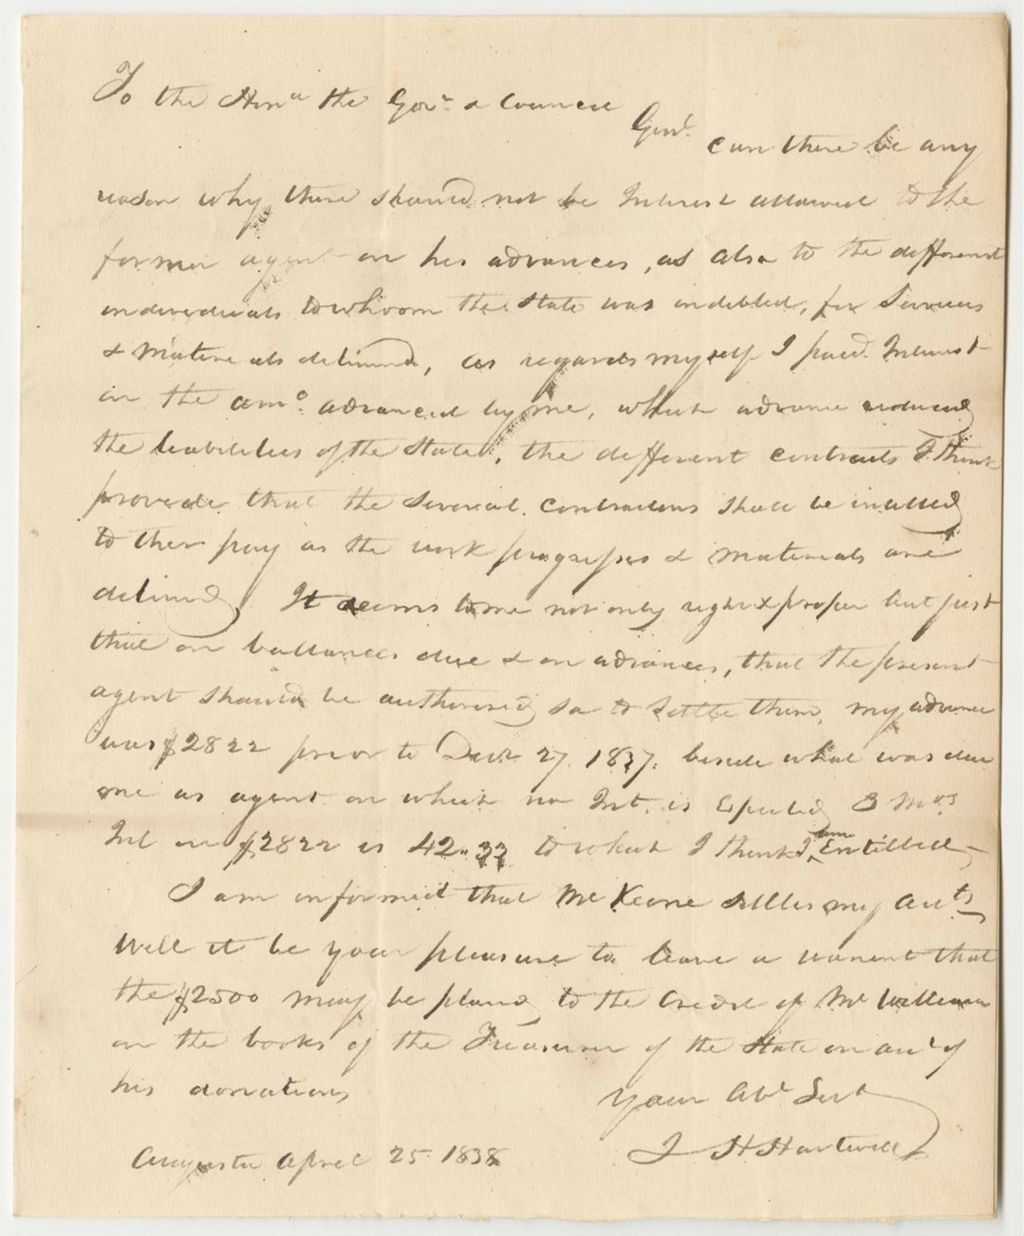 To the Hon.ᵃ the Govʳ & Council
Genᵗ can there be any
reason why there should not be Interest allowed to the
former agent on his advances, as also to the different
individuals to whoom the State was indebted, for Services
& Materials delivered, as regards myself I paid Interest
on the amᵒ. advanced by me, which advance reduced
the liabilities of the State, the different contracts I think
provide that the several contractors shall be intitled
to their pay as the work progresses & materials are
delivered, It seems to me not only right & proper but just
that on ballances due & on advances, that the present
agent should be authorised so to settle them, my advance
was $2822 prior to Decʳ 27. 1837. beside what was due
me as agent on which no Int. is Expected 3 Mos
Int on $2822 is 42.33 to which I think I am Entitled
I am informed that Mr Keene settles my accᵗˢ
Will it be your pleasure to leave a warrant that
the $2500 may be placed to the Credit of Mr Williams
on the books of the Treasurer of the State on accᵗ of
his donations
Your Obᵗ Servᵗ
J H Hartwell
Augusta April 25 1838